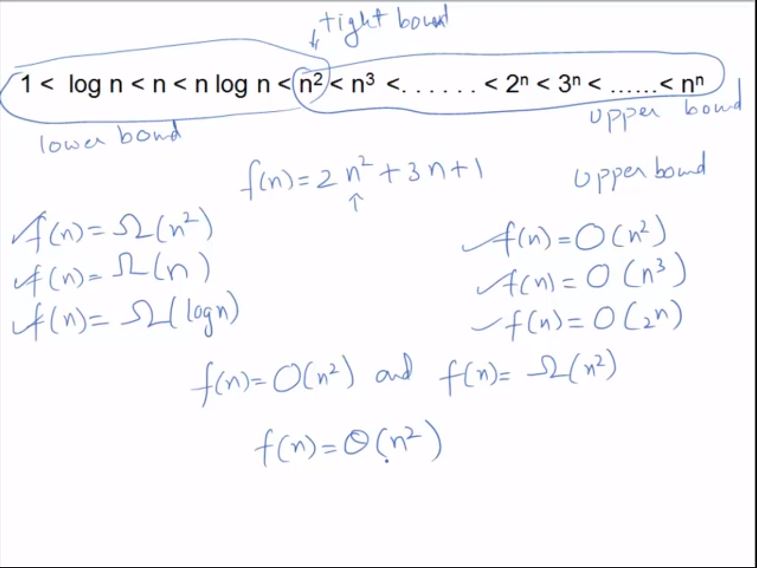 tight bound
1 < log n < n < n log n < n² < n³ < . . . . . . < 2ⁿ < 3ⁿ < ...... < nⁿ
lower bond
upper bond
f(n) = 2n² + 3n + 1
upper bound
f(n) = Ω(n²)
f(n) = O(n²)
f(n) = Ω(n)
f(n) = O(n³)
f(n) = Ω(log n)
f(n) = O(2ⁿ)
f(n) = O(n²) and f(n) = Ω(n²)
f(n) = Θ(n²)